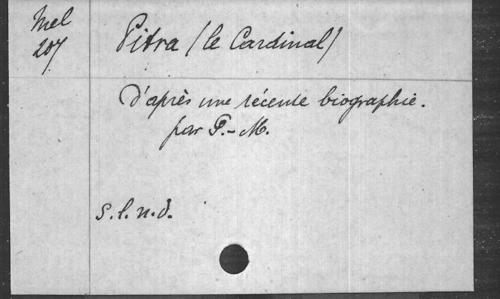 Mel
207
Pitra (le Cardinal)
D'après une récente biographie.
par P.-M.
s.l.n.d.